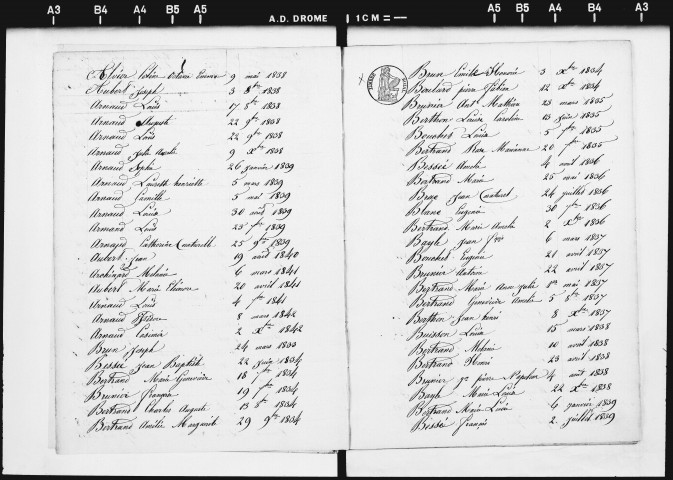 A3 B4 A4 B5 A5 A.D. DROME 1 CM = A5 B5 A4 B4 A3
Olivier 9 mai 1838
Hubert Joseph 3 8bre 1838
Arnaud Louis 17 8bre 1838
Arnaud Auguste 22 9bre 1838
Arnaud Louis 22 9bre 1838
Arnaud Julie 9 Xbre 1838
Arnaud Sophie 26 janvier 1839
Arnaud Henriette 5 mars 1839
Arnaud Camille 5 mai 1839
Arnaud Louisa 30 août 1839
Armand Louis 23 7bre 1839
Arnaud Catherine (naturelle) 25 9bre 1839
Aubert Jean 19 août 1840
Archinard Mélanie 6 mars 1841
Aubert Marie Eléonore 20 avril 1841
Arnaud Louis 4 7bre 1841
Arnaud 8 mars 1842
Arnaud Casimir 2 Xbre 1842
Brun Joseph 24 mars 1833
Besse Jean Baptiste 22 juin 1834
Bertrand Marie Genevière 18 7bre 1834
Brunier François 19 7bre 1834
Bertrand Charles Auguste 13 8bre 1834
Bertrand Amélie Marguerite 29 9bre 1834
Brun Emile 3 Xbre 1834
12 Xbre 1834
Brunier Ant. Mathieu 23 mars 1835
Berthon Louise Caroline 13 juin 1835
Bouchet Louisa 5 7bre 1835
Bertrand Rose Marianne 20 7bre 1835
Besse Amélie 4 avril 1836
Bertrand Marie 25 mai 1836
Jean (naturel) 24 juillet 1836
Blanc Eugénie 30 7bre 1836
Bertrand Marie Amélie 2 Xbre 1836
Bayle Jean 6 mars 1837
Bouchet Eugénie 21 avril 1837
Brunier 22 avril 1837
Bertrand Marie Anne Julie 1er mai 1837
Bertrand Geneviève Amélie 5 8bre 1837
Berthon Jean Henri 8 Xbre 1837
Buisson Louise 15 mars 1838
Bertrand Mélanie 10 avril 1838
Bertrand Henri 23 avril 1838
Brunier Jn pierre Napoléon 4 août 1838
Bayle Marie Louise 22 Xbre 1838
Bertrand Marie Louise 6 janvier 1839
Besse François 2 juillet 1839